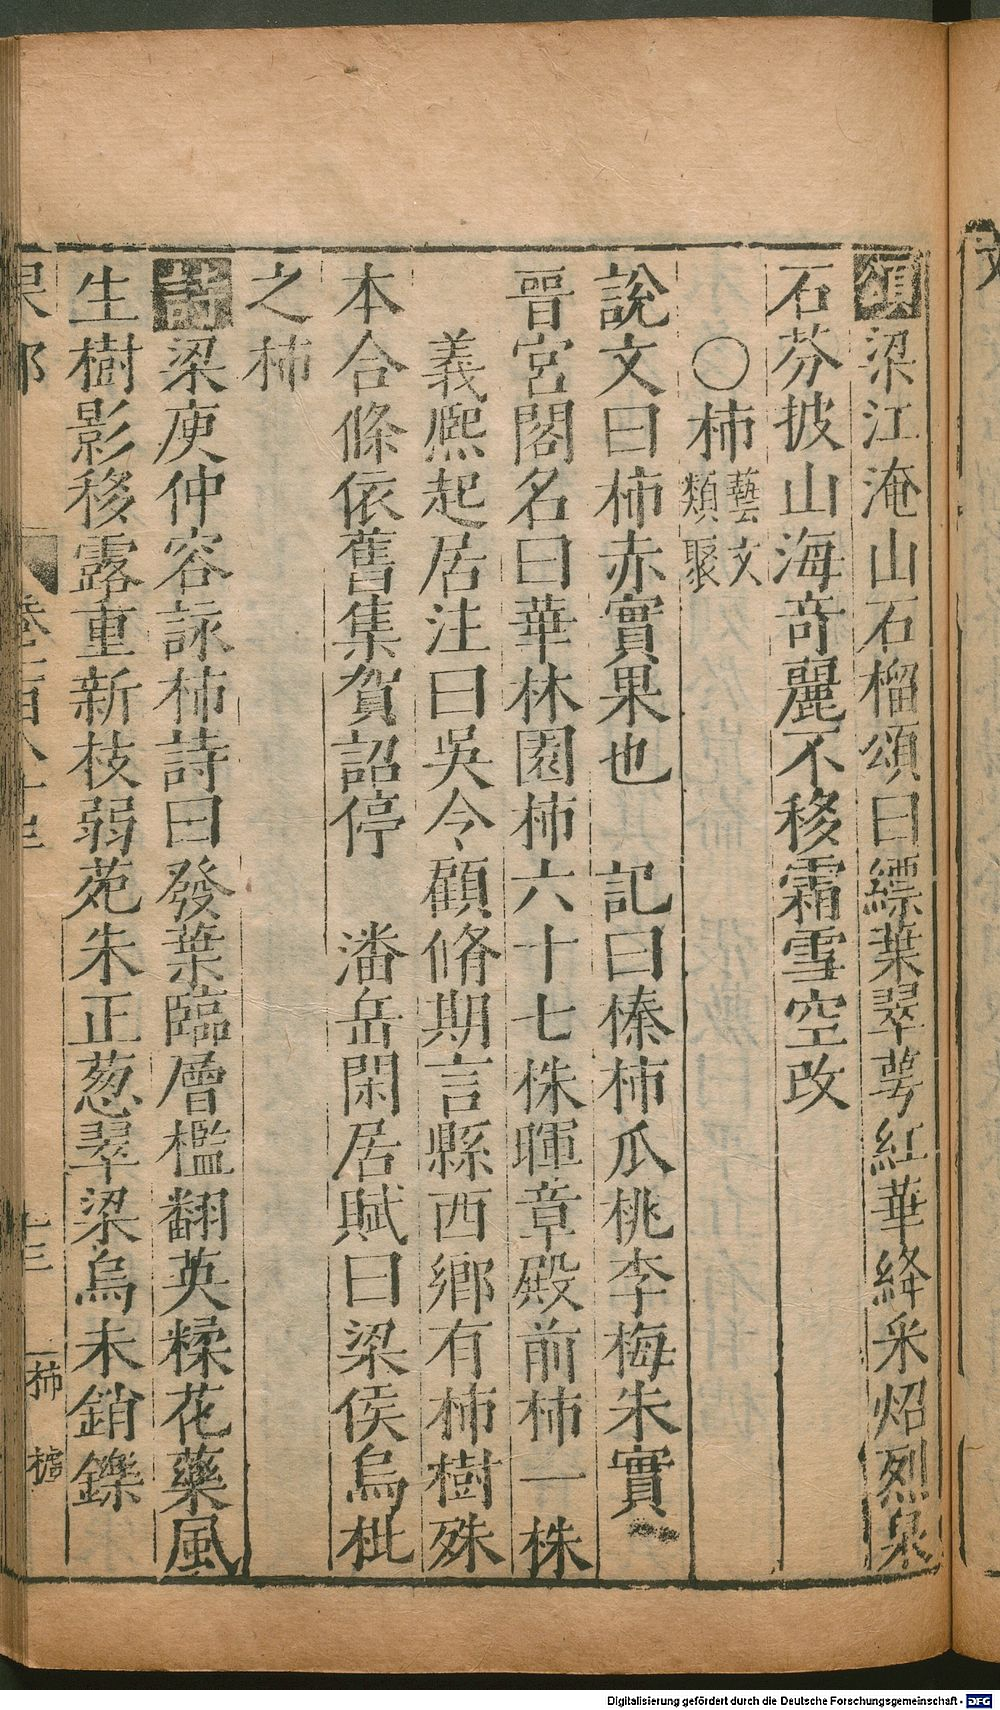 頌梁江淹山石榴頌曰縹葉翠萼紅華絳采炤烈泉
石芬披山海奇麗不移霜雪空改
○柿藝文類聚
說文曰柿赤實果也 記曰榛柿瓜桃李梅朱實
晉宮閣名曰華林園柿六十七株暉章殿前柿一株
義熈起居注曰吳令顧脩期言縣西鄉有柿樹殊
本合條依舊集賀詔停 潘岳閑居賦曰梁侯烏枇
之柿
詩梁庾仲容詠柿詩曰發葉臨層檻翻英糅花藥風
生樹影移露重新枝弱苑朱正葱翠梁烏未銷鑠
果部 卷二百八十 十三 柿
Digitalisierung gefördert durch die Deutsche Forschungsgemeinschaft - DFG